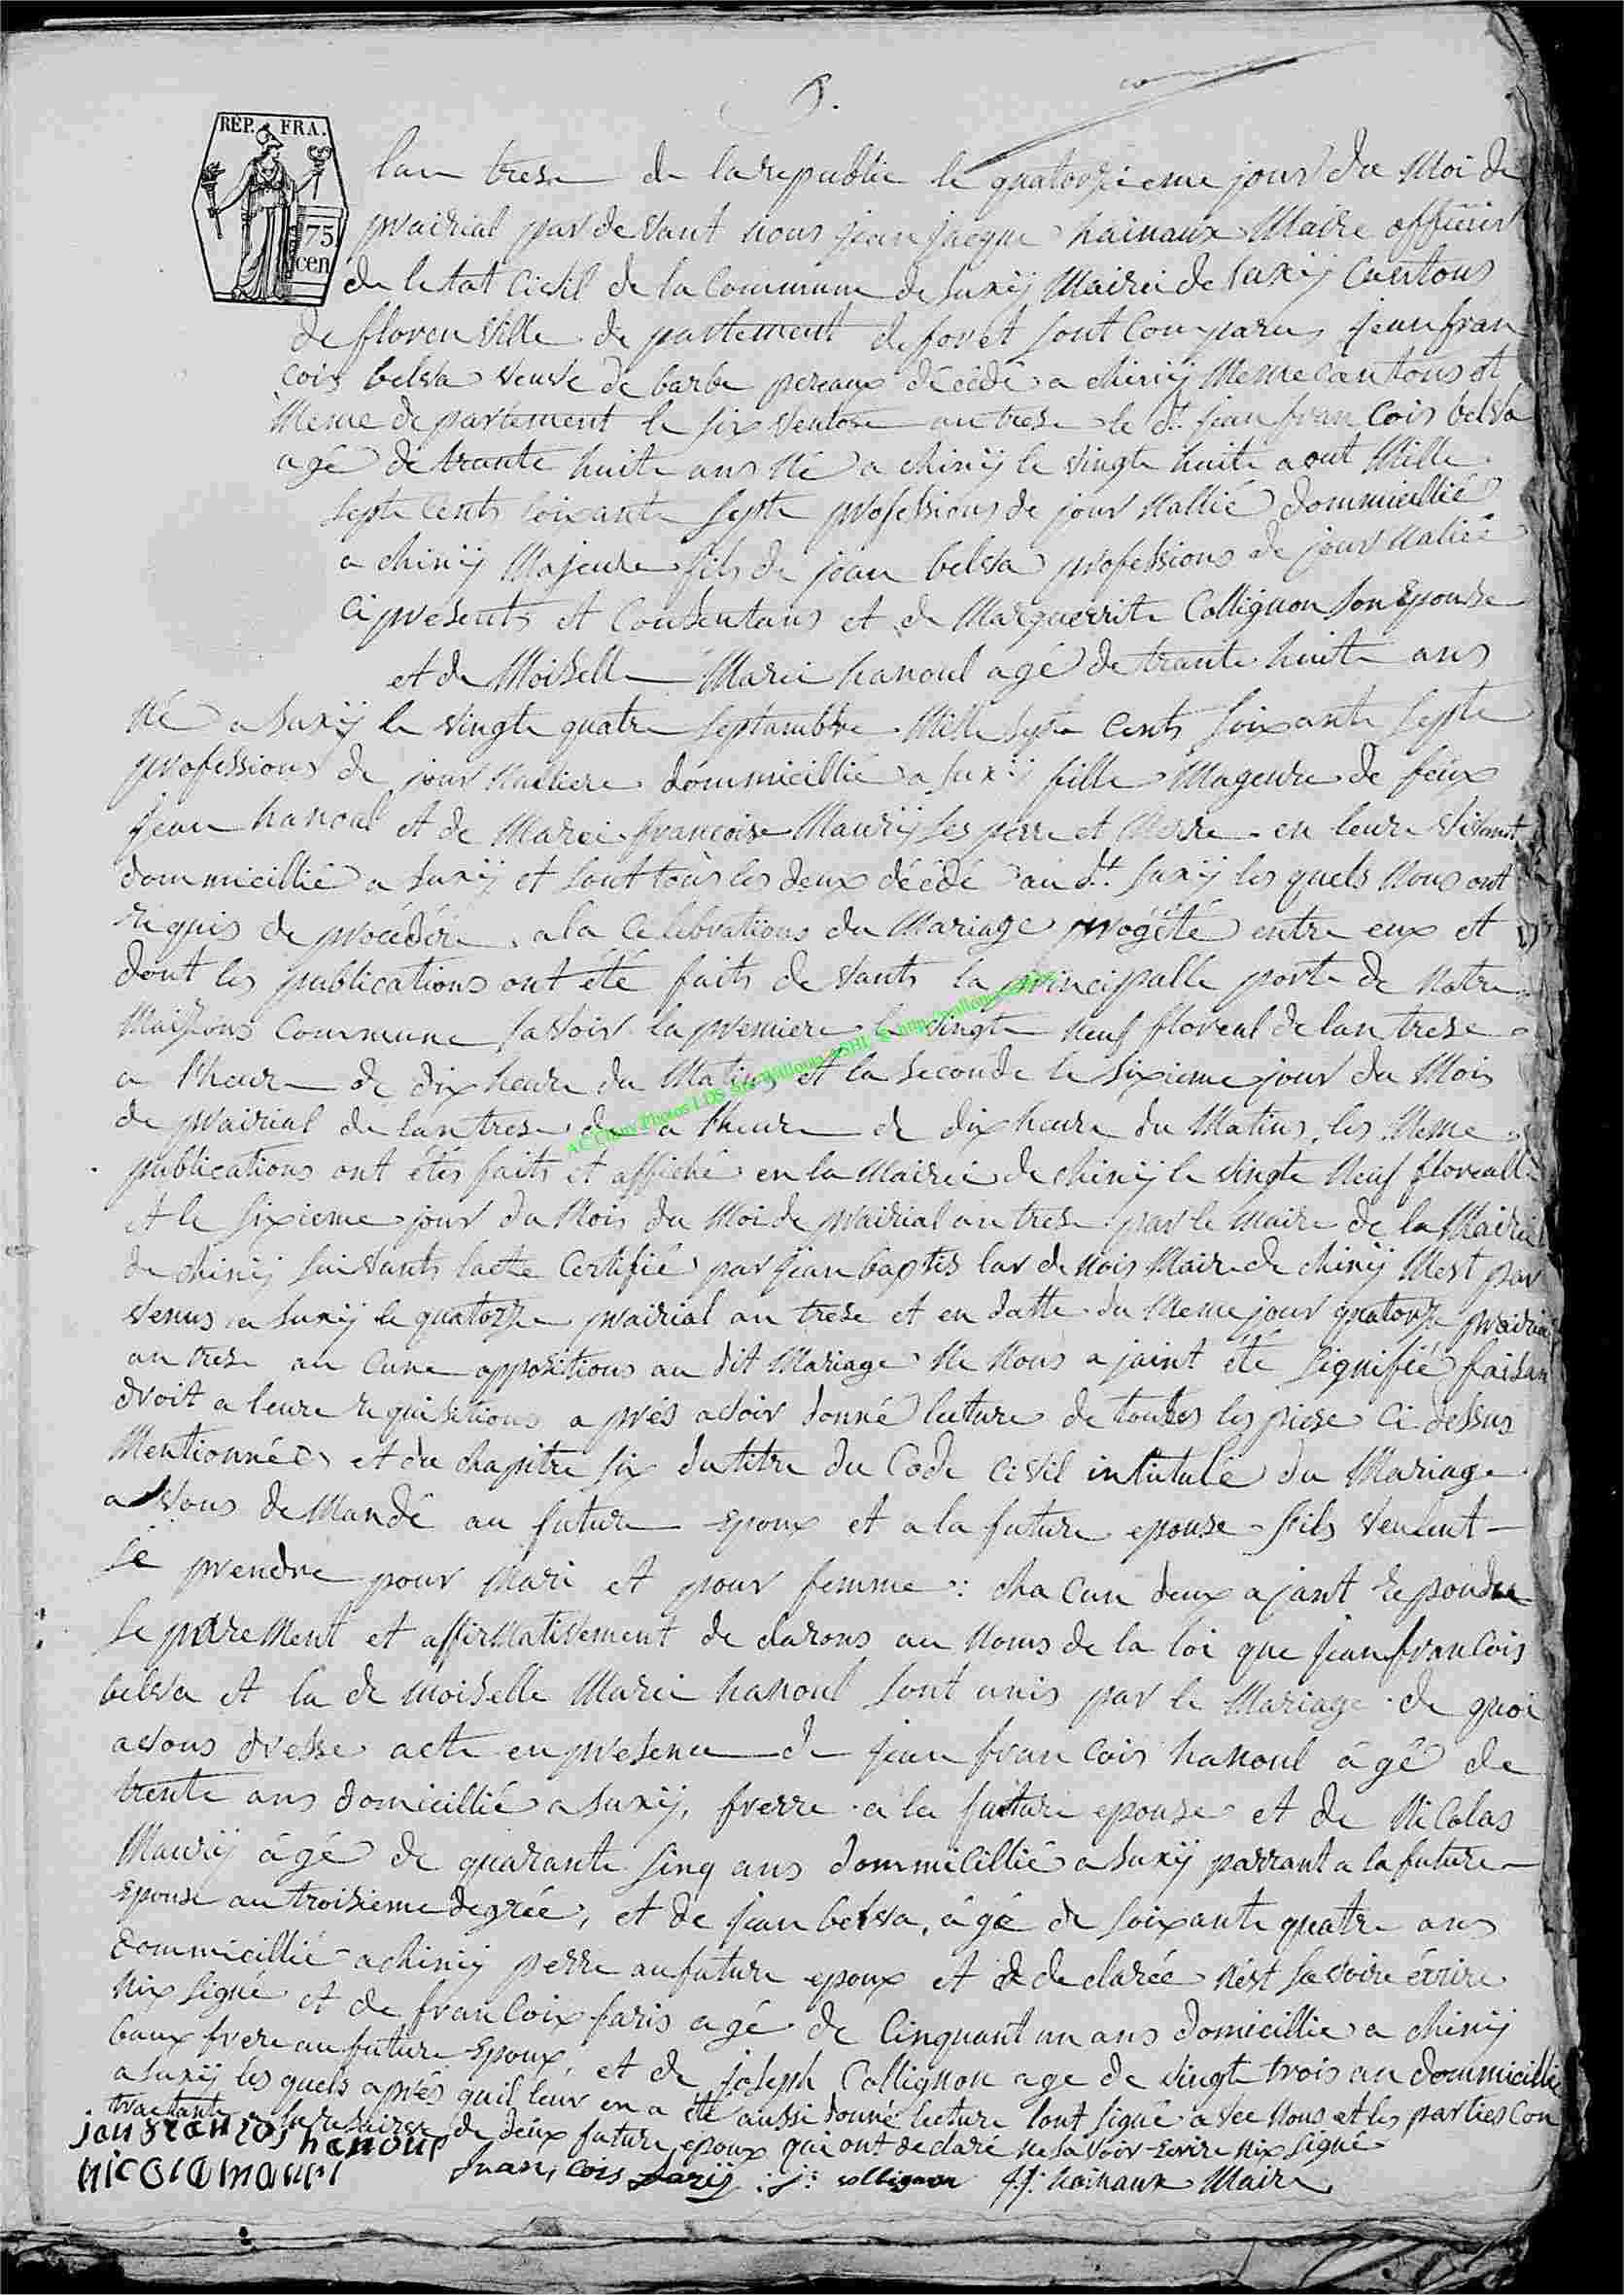 5.
RÉP. FRA.
75
cen
lan trese de la republic le quatorzieme jour du Moi de
prairial par de vant nous jean jacque hainaux Maire officier
de letat Civil de la Commune de Suxÿ Mairei de Suxÿ Cantons
de floren ville de partement de foret sont Comparus jean fran
cois belva veuve de barbe pereaux décédé a chinÿ Meme cantons et
Meme de partement le six ventose an trese le dt. jean fran Cois belva
agé de trante huite ans Né a chinÿ le vingte huite aout Mille
septe Cents soixante septe professions de jour Nallié dommicillié
a chinÿ Majeure fils de jean belva professions de jour Naliée
Ci presents et Consentans et de Marguerrite Collignon son Epouse
et de Moiselle Marei hanoul agé de trante huite ans
Né a Suxÿ le vingte quatre septambre Mille septe Cents soixante septe
professions de jour Naliere dommicillié a Suxÿ fille Mageure de feux
jean hanoul et de Marei francoise Maurÿ ses perre et Merre en leure vivant
dommicillié a Suxÿ et sont tous les deux décédé au dt. Suxÿ les quels Nous ont
requis de procédére a la Celebrations du Mariage progété entre eux et
dont les publications ont été faits de vants la principalle porte de Notre
Maisons Commune savoir la premiere le vingte neuf floreal de lan trese
a l'heure de dix heure du Matins et la seconde le sixieme jour du Mois
de prairial de lan trese de a l'heure de dix heure du Matins, les Meme
publications ont étés faits et affiché en la Mairei de chinÿ le vingte Neuf floreall
et le sixieme jour du Mois du Moi de prairial an trese par le maire de la Mairei
de chinÿ suivants lacte Certifié par jean baptis lar de nois Maire de chinÿ Mest par
venus a Suxÿ le quatorze prairial an trese et en datte du Meme jour quatorze prairial
an trese au Cune oppositions au dit Mariage Ne Nous a jaint été signifié faisan
droit a leure requisitions a près avoir donné lecture de toutes les piese Ci dessus
Mentionnées et du chapitre six du titre du Code Civil intitulé du Mariage
avons de Mandé au future epoux et a la future epouse sils veulent
se prendre pour Mari et pour femme : cha Cun deux ajant repondu
se parement et affirmativement de clarons au Noms de la loi que jean franCois
belva et la de moiselle Marei hanoul sont unis par le Mariage de quoi
avons dresse acte en presence de jean fran Cois hanoul âgé de
trente ans domicillié a Suxÿ, frerre a la future epouse et de NiColas
Maurÿ âgé de quarante sinq ans dommiCillié a Suxÿ parrant a la future
Epouse au troisieme degrée, et de jean belva, âgé de soixante quatre ans
dommicillié a chinÿ perre au future epoux et a de clarée nést savoire écrire
Nix signé et de franCoix faris agé de Cinquant un ans domicillie a chinÿ
baux frere au future Epoux, et de joseph Collignon age de vingt trois an dommicillié
a Suxÿ les quels après quil leur en a été aussi donné lecture sont signé a vec Nous et les parties Con
tractante de deux future epoux qui ont declaré Ne sa voir Ecrire Nix signé
jan francois hanoul
nicola mauri
fran, cois farÿ
j: collignon
J.J. hainaux Maire